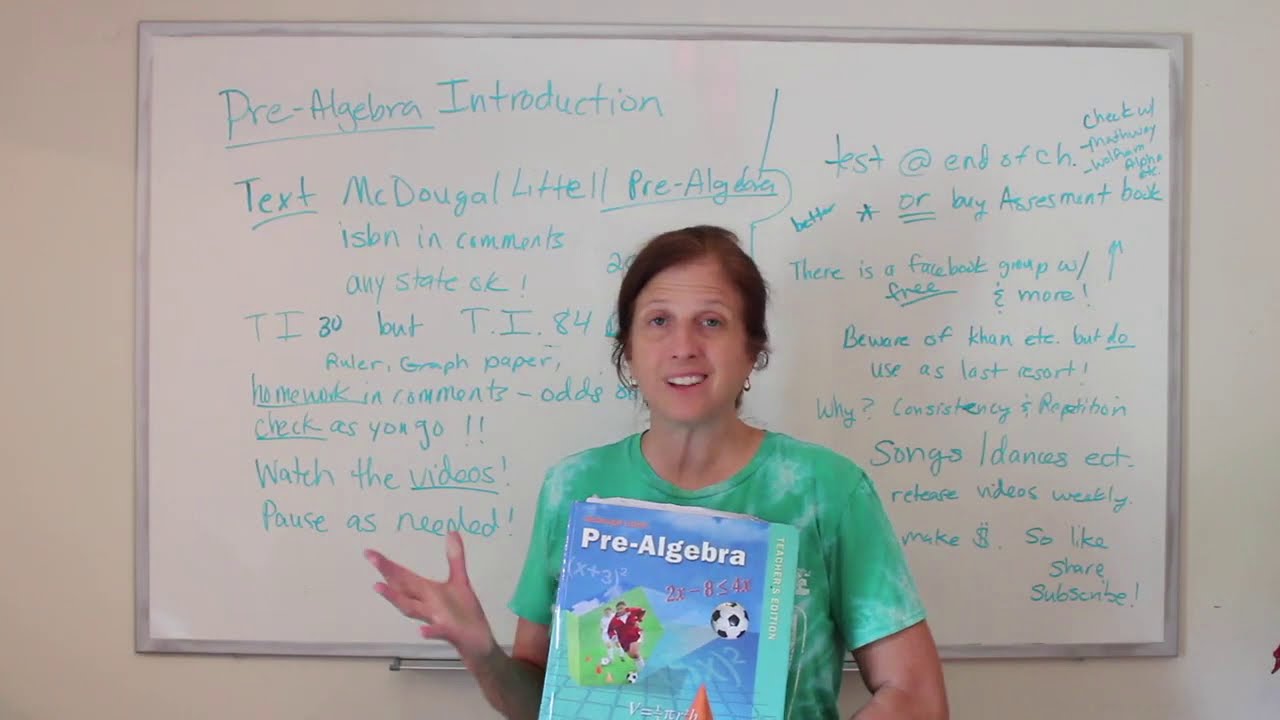 Pre-Algebra Introduction
Text McDougal Littell Pre-Algebra
isbn in comments
any state ok!
TI 30 but T.I. 84
Ruler, Graph paper,
homework in comments - odds
check as you go !!
Watch the videos!
Pause as needed!
check w/
-mathway
-wolfram
Alpha
etc.
test @ end of ch.
better * or buy Assesment book
There is a facebook group w/
free & more!
Beware of khan etc. but do
use as last resort!
Why? Consistency & Repetition
Songs/dances ect.
release videos weekly.
make $. So like
Share
Subscribe!
Pre-Algebra
TEACHER'S EDITION
(x+3)²
2x – 8 ≤ 4x